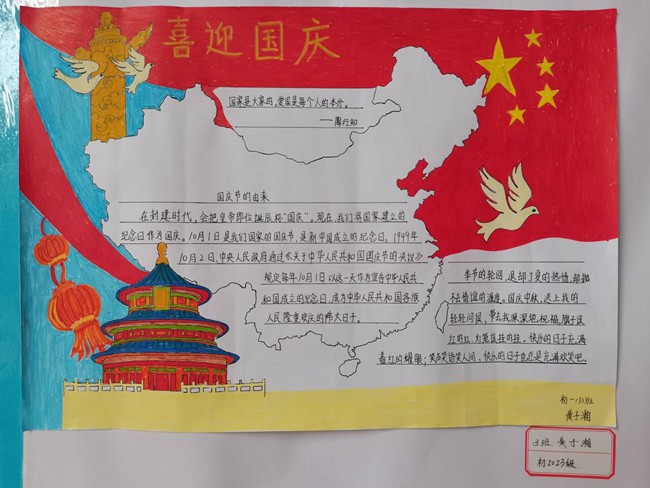 喜迎国庆
国家是大家的，爱国是每个人的本份。
——陶行知
国庆节的由来
在封建时代，会把皇帝即位诞辰称“国庆”。现在，我们将国家建立的
纪念日作为国庆。10月1日是我们国家的国庆节，是新中国成立的纪念日。1949年
10月2日，中央人民政府通过《关于中华人民共和国国庆节的决议》
规定每年10月1日以这一天作为宣告中华人民共
和国成立的纪念日，成为中华人民共和国各族
人民隆重欢庆的伟大日子。
季节的轮回，退却了夏的热情，却抛
不去情谊的温度。国庆中秋，送上我的
轻轻问候，带去我深深地祝福。旗子这
红的红，灯笼这挂的挂，快乐的日子充满
着红的耀眼；笑声笑语笑人间，快乐的日子自总是充满欢笑吧。
初一（3）班
黄子瀚
3班 黄子瀚
初2023级